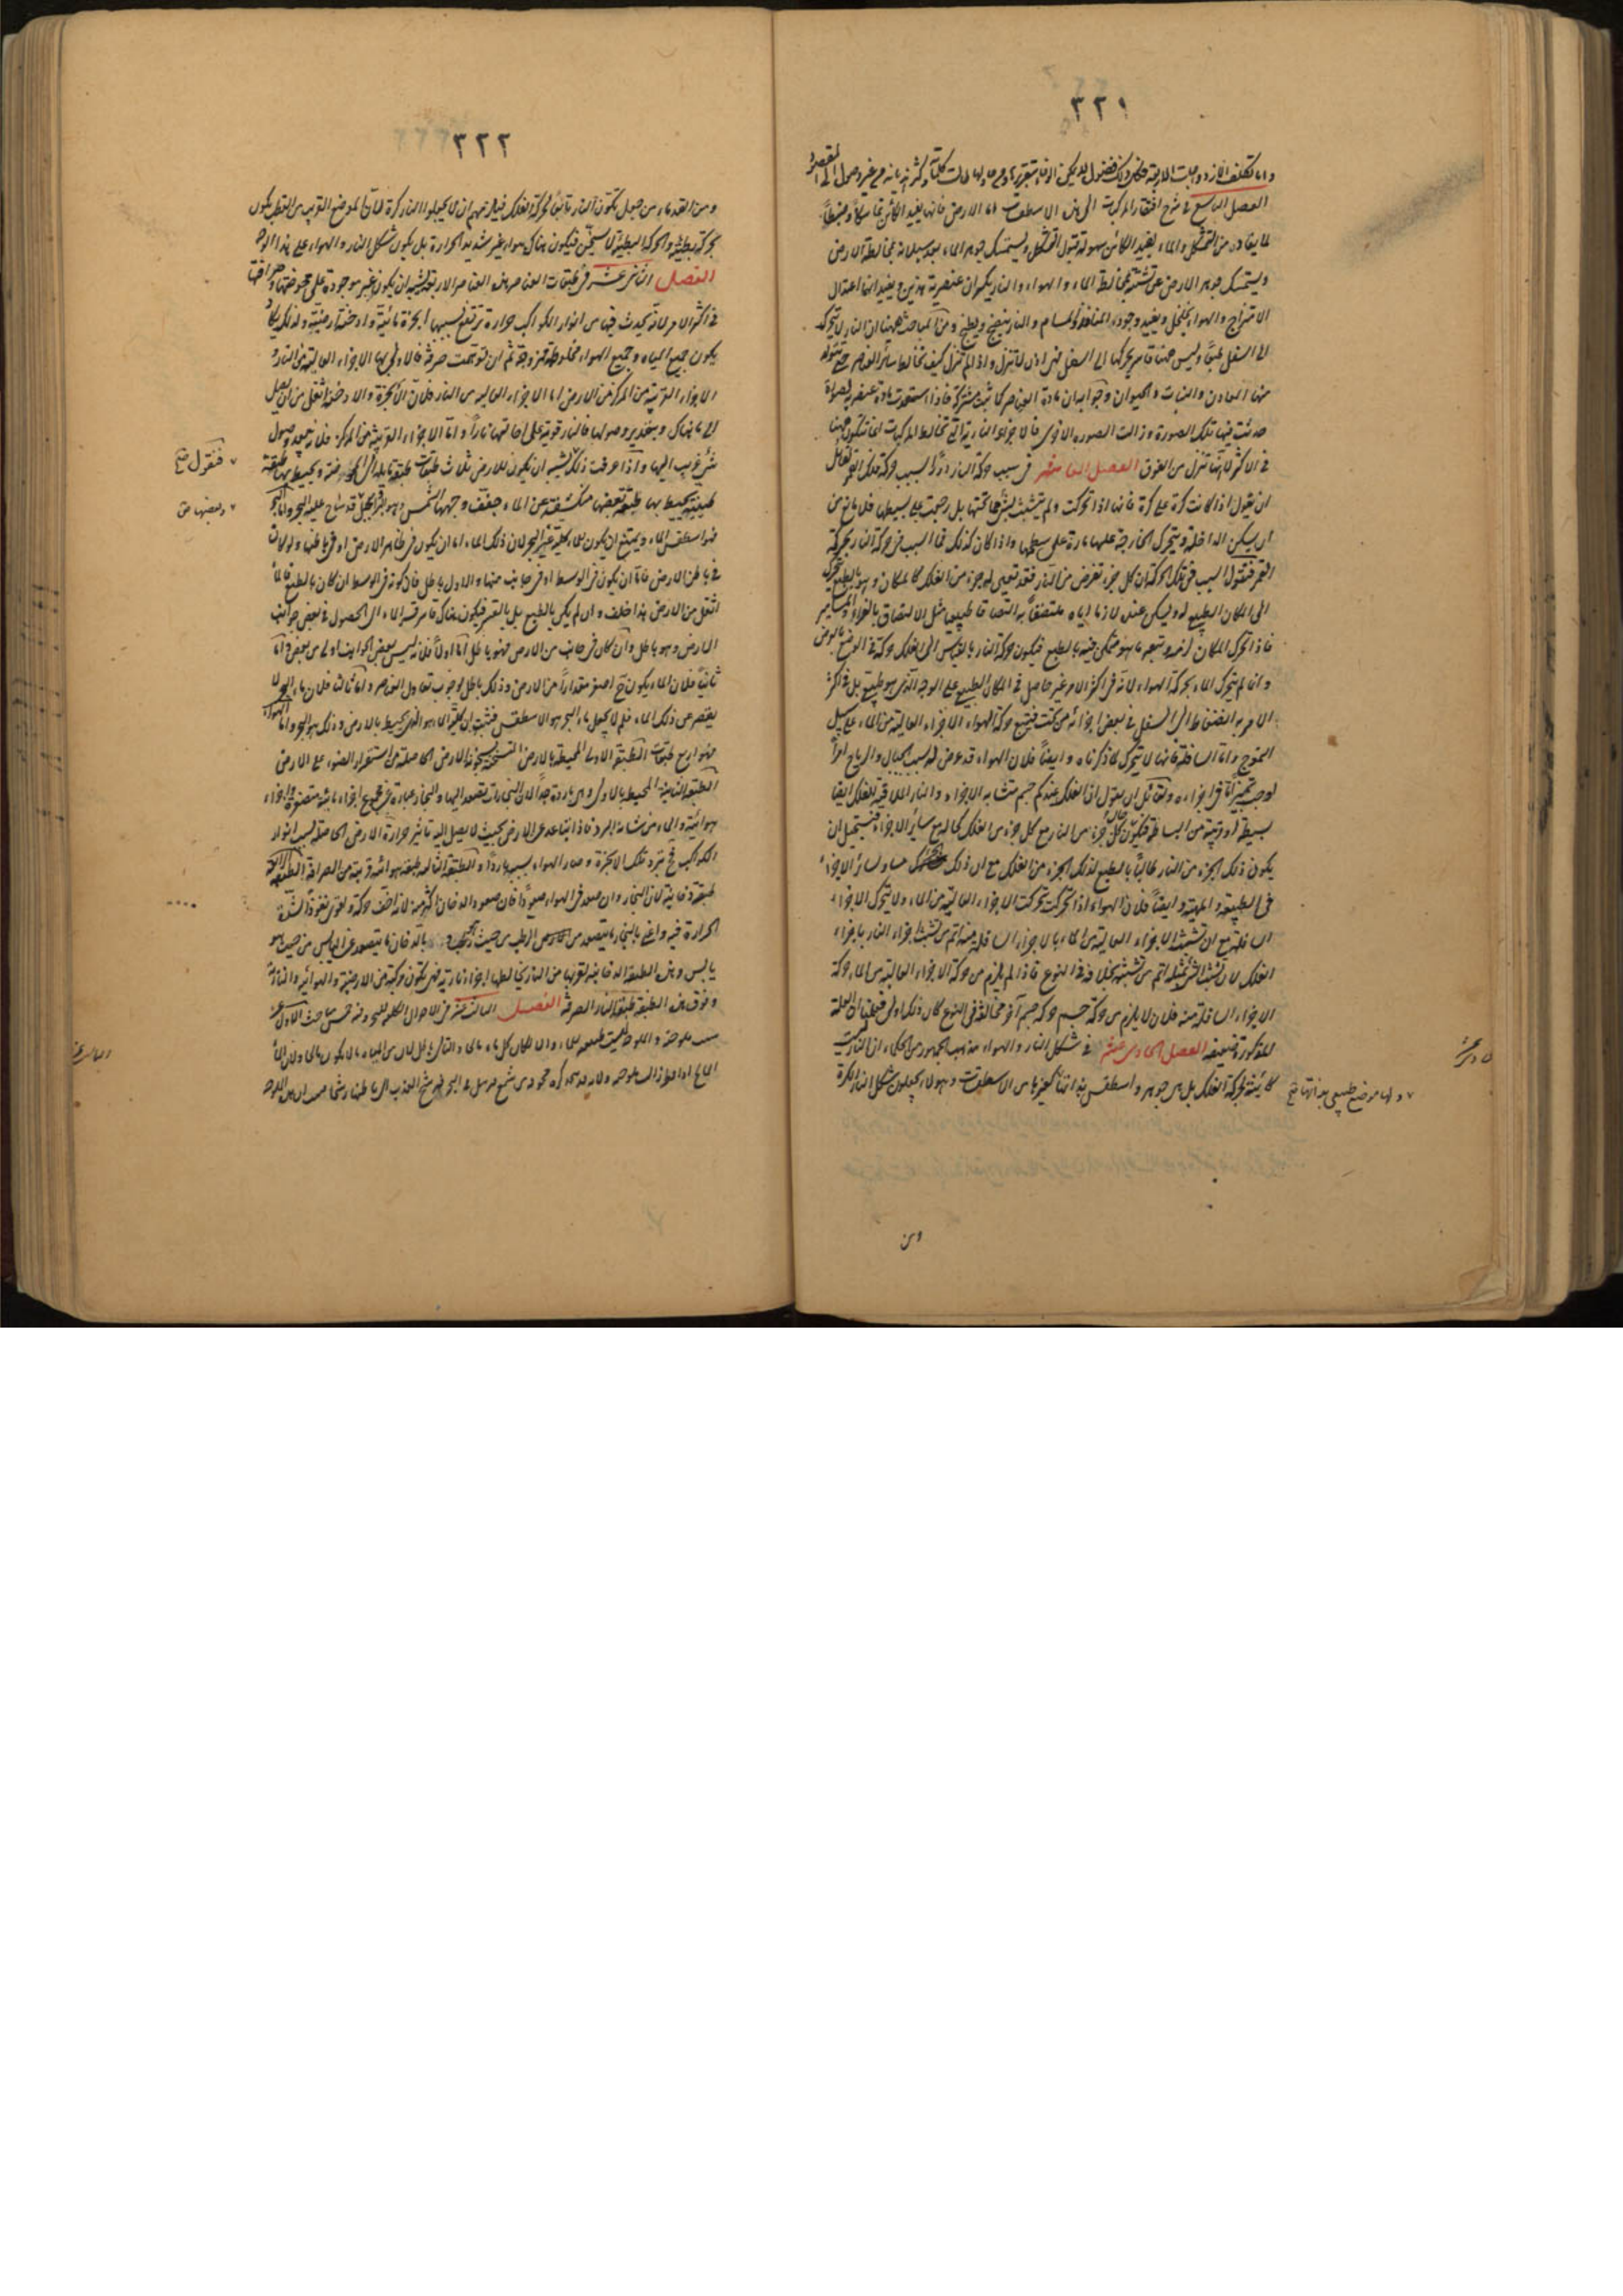 ٣٢١
الفصل التاسع في شرح افتقار المركبات الى هذه الاسطقسات اما الارض فانها يفيد الكائن تماسكا و
لما يفاد من التشكل والماء يفيد الكائن سهولة قبول التشكل ويستمسك جوهر الماء بعد سيلانه بمخالطة الارض
ويستمسك جوهر الارض عن تشتته بمخالطة الماء والهواء والنار يكسران عنصرية هذين ويفيدانها اعتدال
الامتزاج والهواء يخلخل ويفيد وجود المنافذ والمسام والنار ينضج ويطبخ ومن المباحث ههنا ان النار لا يتحرك
الى السفل وليس ههنا قاسر يحركها الى السفل فهى اذن لا تنزل واذا لم تنزل كيف تخالط سائر العناصر حتى يتولد
منها المعادن والنبات والحيوان وجوابه ان مادة العناصر كانت مشتركة فاذا استعدت مادة عنصر لصورة
حدثت فيها تلك الصورة وزالت الصورة الاولى فالاجزاء النارية التى تخالط المركبات انما تتكون ههنا
في الاكثر لا انها تنزل من الفوق الفصل العاشر في سبب حركة النار دورا بسبب حركة فلك القمر لقائل
ان يقول اذا كانت كرة على كرة فانها اذا تحركت ولم يتشبث بشئ مما تحتها بل زحفت على بسيطها فلا مانع من
ان يسكن الداخلة ويتحرك الخارجة عليها مارة على سطحها واذا كان كذلك فما السبب في حركة النار بحركة
القمر فنقول السبب في تلك الحركة ان كل جزء تفرض من النار فقد تعين له جزء من الفلك كالمكان وهو بالطبع يتحرك
الى المكان الطبيعي له ويسكن عنده لازما اياه ملتصقا به التصاقا طبيعيا مثل الالتصاق بالغراء والمسامير
فاذا تحرك المكان لزمه وتبعه ما هو متمكن فيه بالطبع فيكون حركة النار بالقياس الى الفلك حركة في الوضع بالعرض
وانما لم يتحرك الماء بحركة الهواء لانه في اكثر الامر غير حاصل في المكان الطبيعي على الوجه الذى هو طبيعي بل في اكثر
الامر به انضغاط الى السفل في بعض اجزائه من تحت فيتبع حركة الهواء الاجزاء العالية من الماء على سبيل
التموج واما السافلة فانها لا يتحرك لما ذكرناه وايضا فلان الهواء قد عرض له بسبب الجبال والرياح امرا
اوجب تميزا في اجزائه ولقائل ان يقول اذا الفلك عندكم جسم متشابه الاجزاء والنار الملاقية للفلك ايضا
بسيطة او قريبة من البساطة فيكون حال كل جزء من النار مع كل جزء من الفلك كحاله مع سائر الاجزاء فيستحيل ان
يكون ذلك الجزء من النار طالبا بالطبع لذلك الجزء من الفلك مع ان ذلك مساو لسائر الاجزاء
في الطبيعة والماهية وايضا فلان الهواء اذا تحركت تحركت الاجزاء العالية من الماء ولا يتحرك الاجزاء
السافلة مع ان تشبث الاجزاء العالية من الماء بالاجزاء السافلة منه اتم من تشبث اجزاء النار باجزاء
الفلك لان تشبث الشئ بمثله اتم من تشبثه بخلافه في النوع فاذا لم يلزم من حركة الاجزاء العالية من الماء حركة
الاجزاء السافلة منه فلان لا يلزم من حركة جسم حركة جسم آخر مخالف في النوع كان ذلك اولى فعلمنا ان العلة
المذكورة ضعيفة الفصل الحادى عشر في شكل النار والهواء مذهب الجمهور من الحكماء ان النار ليست
كائنة بحركة الفلك بل هى جوهر واسطقس بذاتها كغيرها من الاسطقسات وهؤلاء يجعلون شكل النار الكرة
ولها موضع طبيعى بذاتها خ
ومن
٣٢٢
ومن القدماء من جعل تكون النار تابعا لحركة الفلك فيلزمهم ان لا يجعلوا النار كرة لان الموضع القريب من القطب يكون
حركة بطيئة والحركة البطيئة لا تسخن فيكون هناك هواء غير شديد الحرارة بل يكون شكل النار والهواء على هذا الوجه
الفصل الثانى عشر في طبقات العناصر هذه العناصر الاربعة يشبه ان يكون غير موجودة على محوضتها وصرافتها
في اكثر الامر لانه يحدث فيها من انوار الكواكب حرارة ترتفع بسببها ابخرة مائية وادخنة ارضية ولذلك يكاد
يكون جميع المياه وجميع الهواء مخلوطة ممزوجة ثم ان توهمت صرفة فالاولى بها الاجزاء العالية من النار و
الاجزاء القريبة من المركز من الارض اما الاجزاء العالية من النار فلان الابخرة والادخنة اثقل من ان يصل
الى ما هناك وبتقدير وصولها فالنار قوية على احالتها نارا واما الاجزاء القريبة من المركز فلانه يبعد وصول
شئ غريب اليها واذا عرفت ذلك يشبه ان يكون للارض ثلاث طبقات طبقة مائلة الى محوضة ويحيط بها طبقة
طينية يحيط بها طبقة بعضها منكشفة عن الماء جفف وجهها الشمس وهو البر والجبل قد ساح عليه البحر واما البحر
فهو اسطقس الماء ويمتنع ان يكون للماء كلية غير البحر لان ذلك الماء اما ان يكون في ظاهر الارض او في باطنها ولو كان
في باطن الارض فاما ان يكون في الوسط او في جانب منها والاول باطل فان كونه في الوسط ان كان بالطبع فالماء
اثقل من الارض هذا خلف وان لم يكن بالطبع بل بالقسر فيكون هناك قاسر قسر الماء الى الحصول في بعض جوانب
الارض وهو باطل وان كان في جانب من الارض فهو باطل اما اولا فلانه ليس بعض الجوانب اولى من بعض واما
ثانيا فلان الماء يكون ح اصغر مقدارا من الارض وذلك باطل لوجوب تعادل العناصر واما ثالثا فلان ماء البحر لا
يقصر عن ذلك الماء فلم لا يجعل ماء البحر هو الاسطقس فثبت ان كلية الماء هو الذى يحيط بالارض وذلك هو البحر واما الهواء
فهو اربع طبقات الطبقة الاولى المحيطة بالارض المتسخنة بسخونة الارض الحاصلة من استقرار الضوء على الارض
الطبقة الثانية المحيط بالاولى وهى باردة جدا لان البخارات يتصعد اليها والبخار عبارة عن مجموع اجزاء مائية متصغرة واجزاء
هوائية والماء من شانه البرد فاذا تباعد عن الارض بحيث لا يصل اليه تاثير حرارة الارض الحاصلة بسبب انوار
الكواكب فح تبرد تلك الابخرة وصار الهواء بسببه باردا والطبقة الثالثة طبقة هوائية قريبة من الصرافة الطبقة الرابعة
طبقة دخانية لان البخار وان صعد في الهواء صعودا فان صعود الدخان اكثر منه لانه اخف حركة واقوى نفوذا لشدة
الحرارة فيه واعنى بالبخار ما يتصعد من الرطب من حيث هو رطب و بالدخان ما يتصعد عن اليابس من حيث هو
يابس وهذه الطبقة الدخانية لقربها من النار يخالطها اجزاء نارية فهى يتكون مركبة من الارضية والهوائية والنارية
وفوق هذه الطبقة طبقة النار الصرفة الفصل الثالث عشر في الاحوال الكلية للبحر وفيه خمس مباحث الاول في
فنقول خ
وبعضها خ